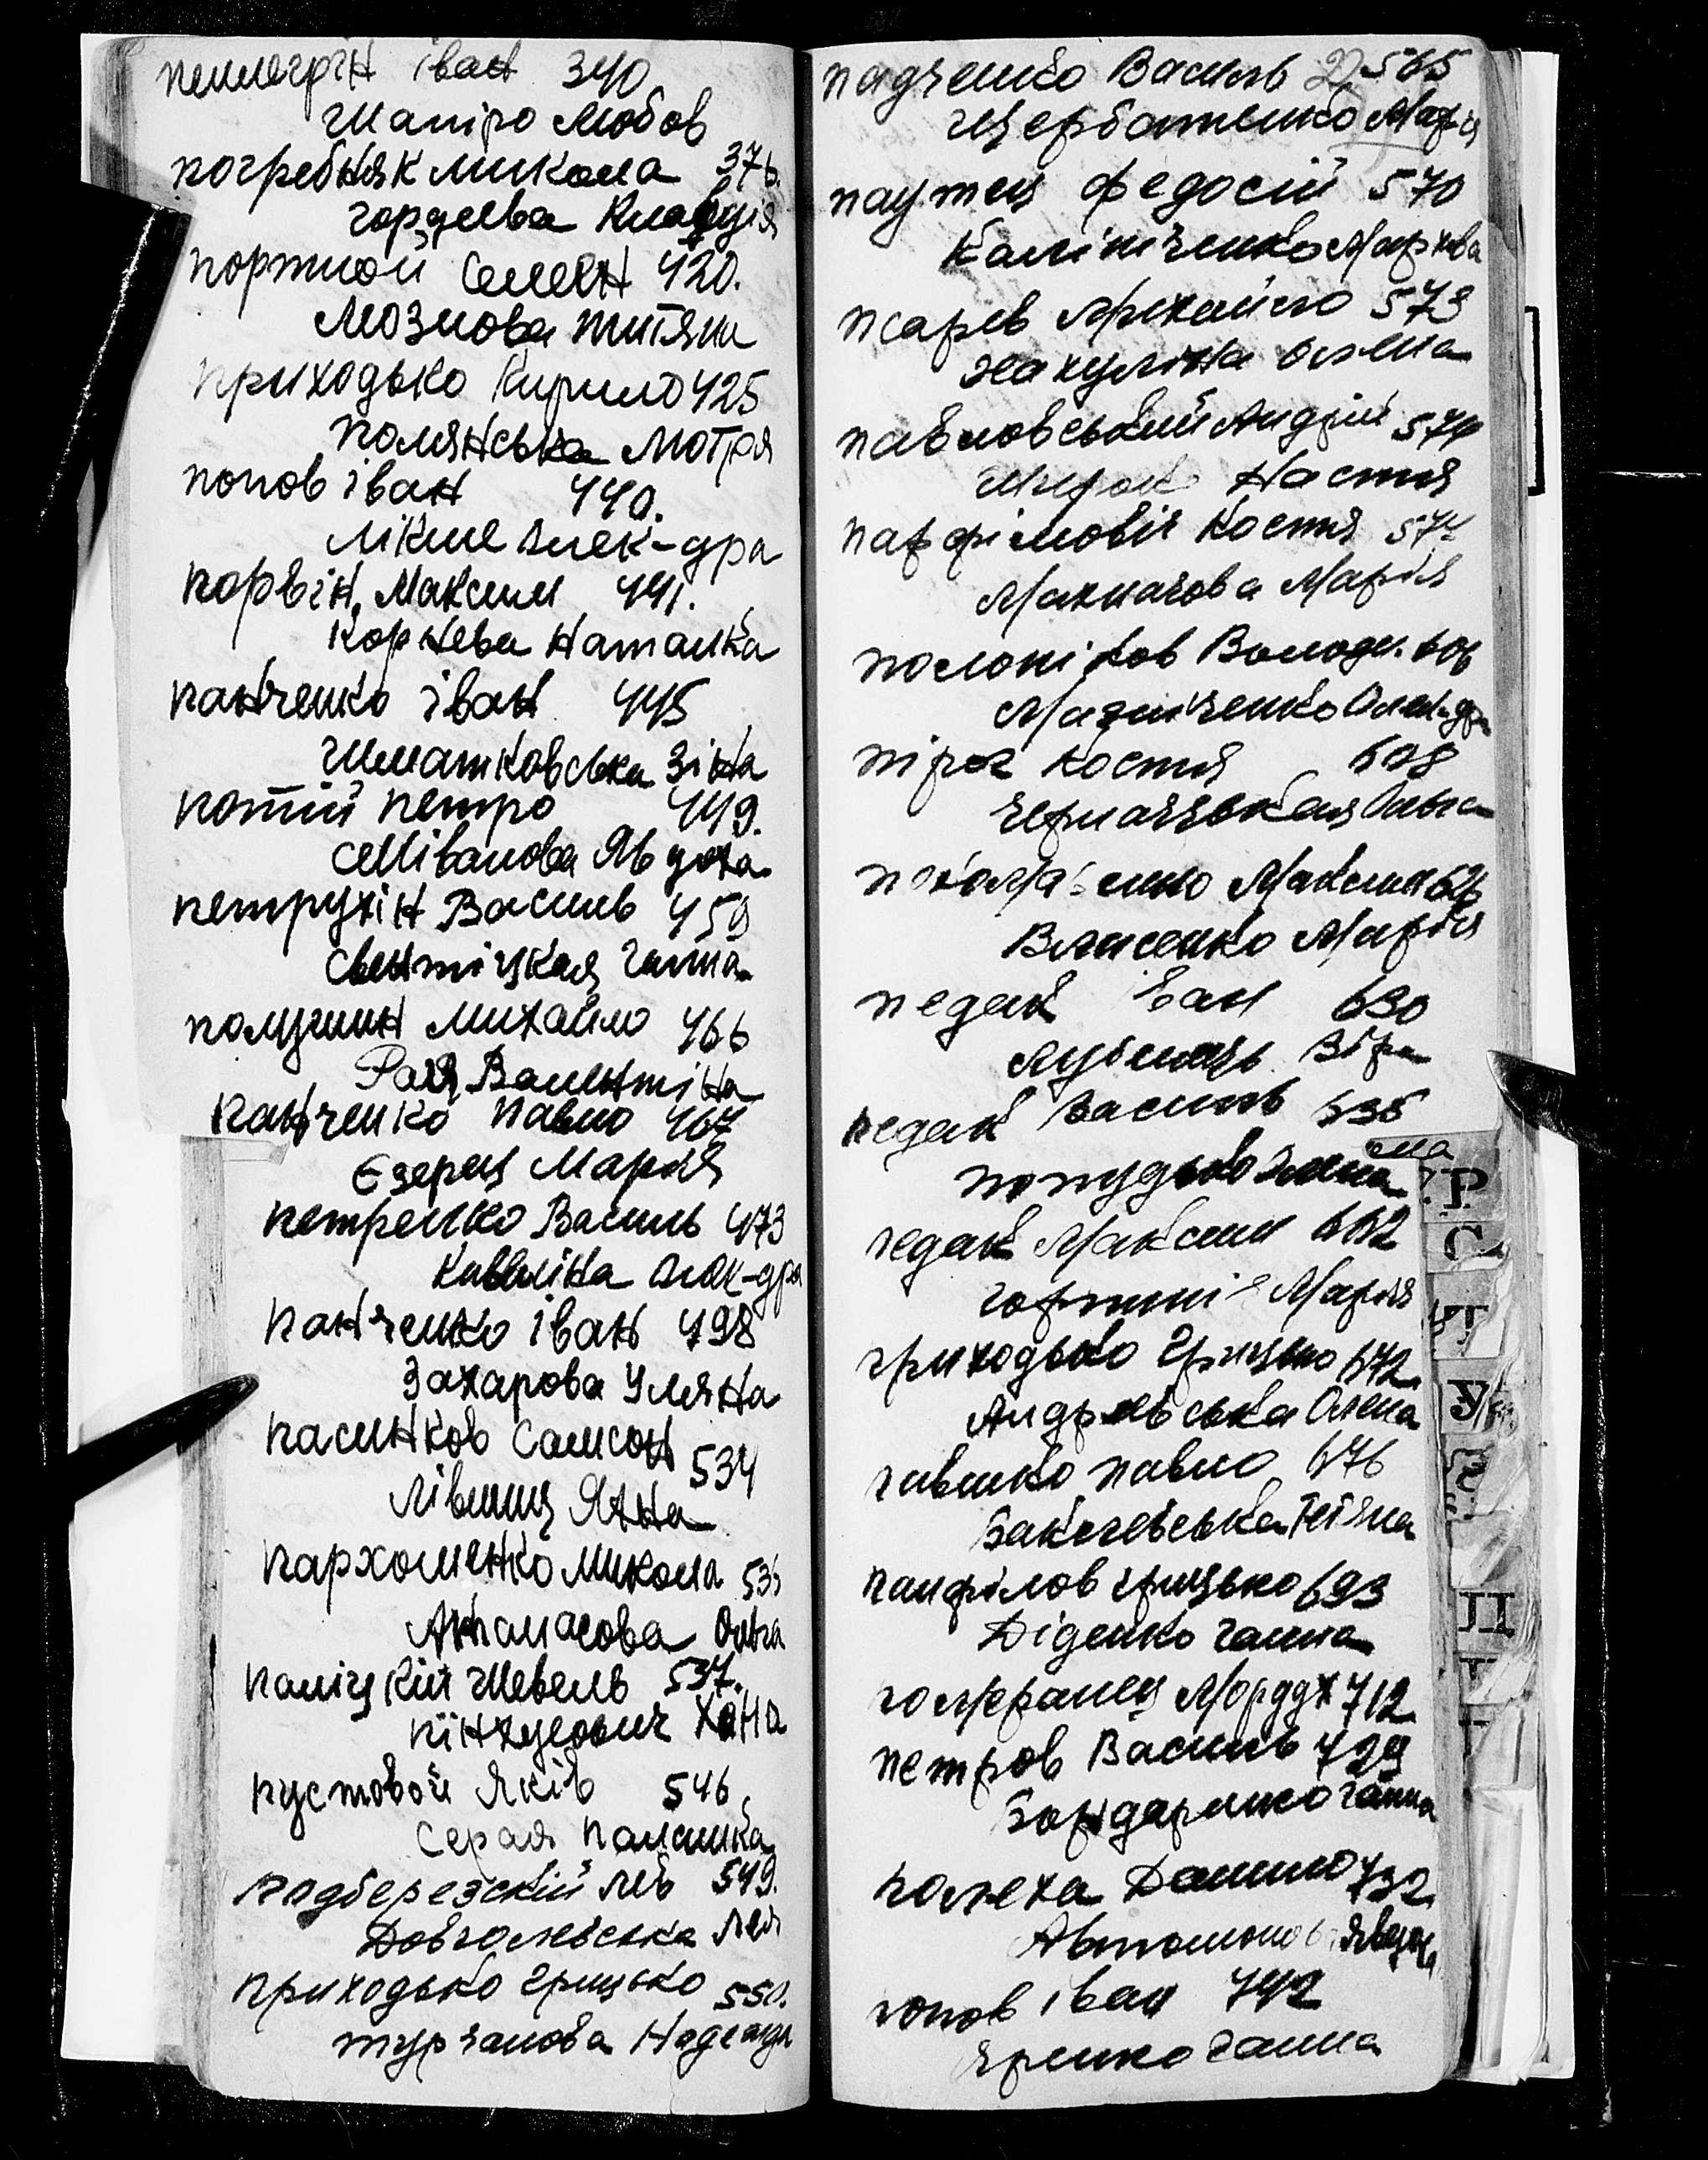 пеллегрін іван 340
Шапіро Любов
погребняк микола 376.
гордеева Клавдія
портной Семен 420.
Мозлова титяна
приходько Кирило 425
полянська Мотря
попов іван 440.
Лікше Олек-дра
порвін, Максим 441.
Корнева Наталка
панченко іван 445
Шматковська Зіна
потій петро 449.
Селіванова Явдоха
петрухін Василь 459
Свентіцкая ганна
полушин михайло 466
Рая, Валентіна
панченко павло 467
Езерец Марія
петренко Василь 473
Олек-дра
панченко іван 498
Захарова Уляна
пасинков Самсон 534
Лівшиц Яна
пархоменко микола 536
Афанасова Ольга
паліцкій Шевель 537.
пінхусович Хана
пустовой Яків 546
Серая палашка
подберезскій лев 549.
Довголевська лея
приходько грицько 550.
турчанова Надежда
падченко Василь 22 565
Щербатенко Марія
паутец федосій 570
Калініченко Марква
псарев Михайло 573
Жакуліна Олена
павловський Андрій 574
Настя
парфімовіч Костя 574
Махначова Марія
Володи. 606
Олек-дра
пірог Костя 608
чернацькая Ольга
Максим 626
Власенко Марія
педак іван 630
Лубенець Віра
педак Василь 635
попудько Олена
педак Максим 662
Марія
приходько грицько 672.
Андрієвська Олена
павленко павло 676
Тетяна
панфілов грицько 693
Діденко ганна
померанец Мордух 712
петров Василь 729
Бондаренко ганна
полеха Данило 732
Автономова Явдоха
попов іван 742
Яренко ганна
Р
С
Т
У
Ц